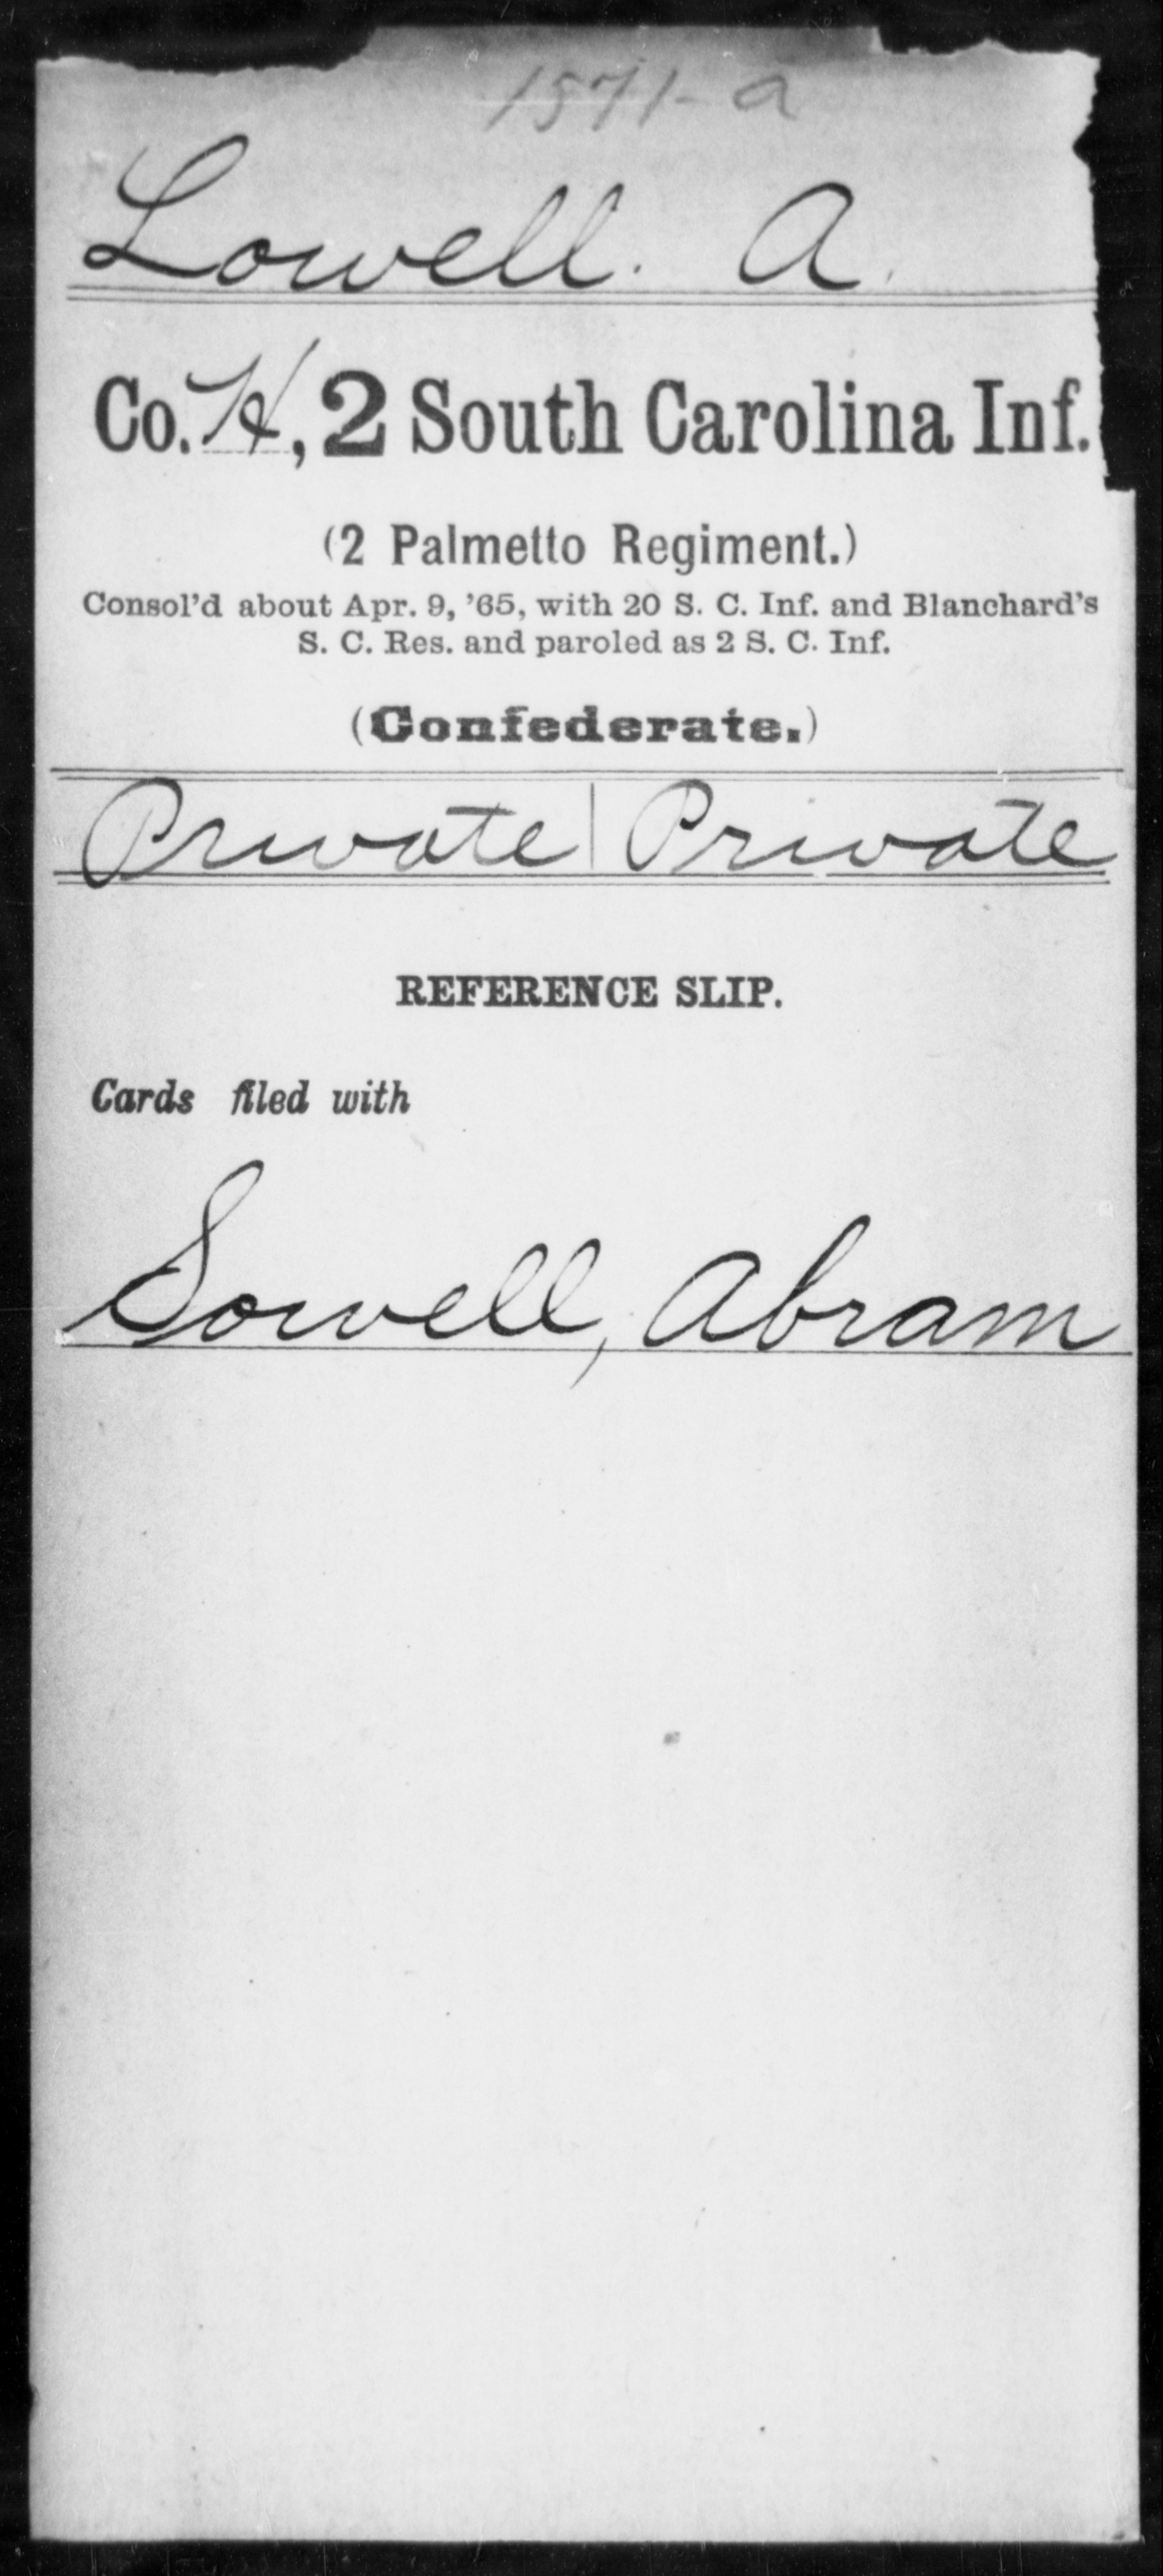 1571-a
Lowell. A.
Co. H, 2 South Carolina Inf.
(2 Palmetto Regiment.)
Consol'd about Apr. 9, '65, with 20 S. C. Inf. and Blanchard's
S. C. Res. and paroled as 2 S. C. Inf.
(Confederate.)
Private | Private
REFERENCE SLIP.
Cards filed with
Sowell, Abram